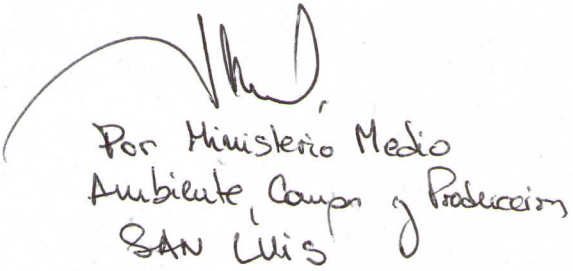 Por Ministerio Medio
Ambiente, Campo y Produccion
SAN LUIS